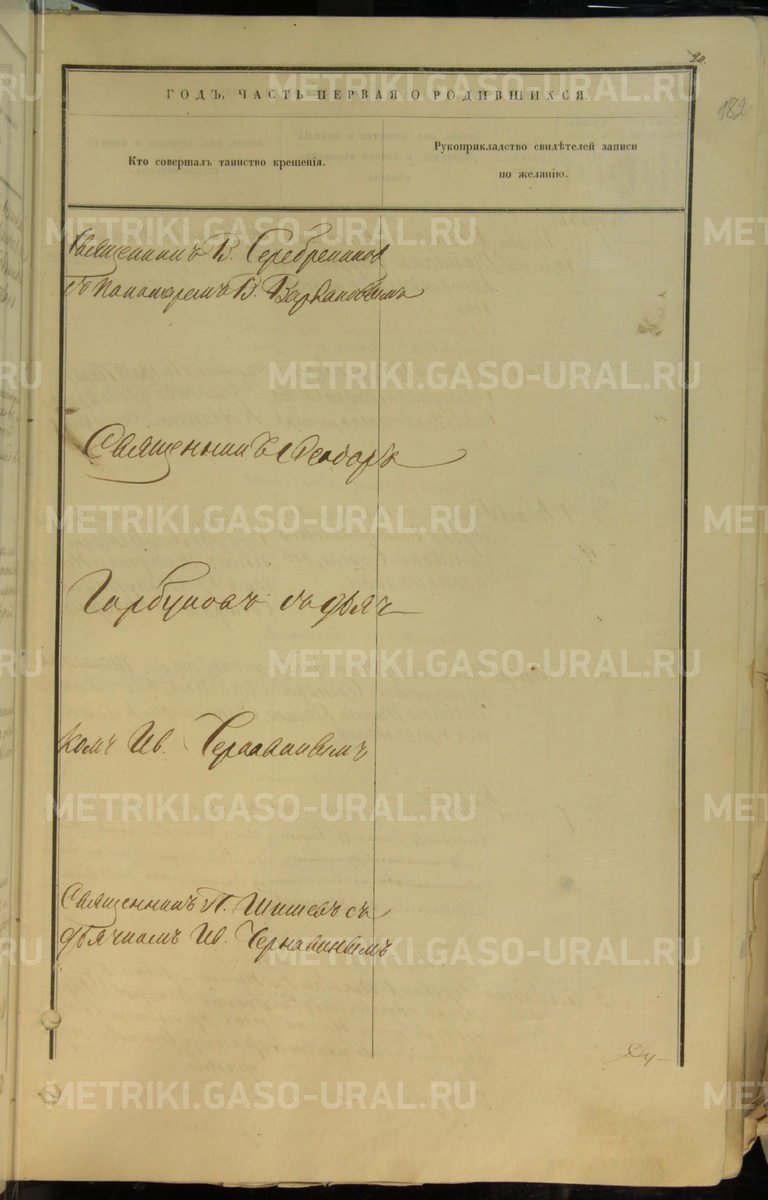 20.
182
ГОДЪ, ЧАСТЬ ПЕРВАЯ О РОДИВШИХСЯ.
Кто совершалъ таинство крещенія.
Рукоприкладство свидѣтелей записи
по желанію.
Священникъ В. Серебренников
съ пономаремъ В.
Священникъ Ѳеодоръ
Горбуновъ съ дьяч
комъ Ив. Чернавинымъ
Священникъ П. Шишевъ съ
дьячкомъ Ив. Чернавинымъ.
METRIKI.GASO-URAL.RU